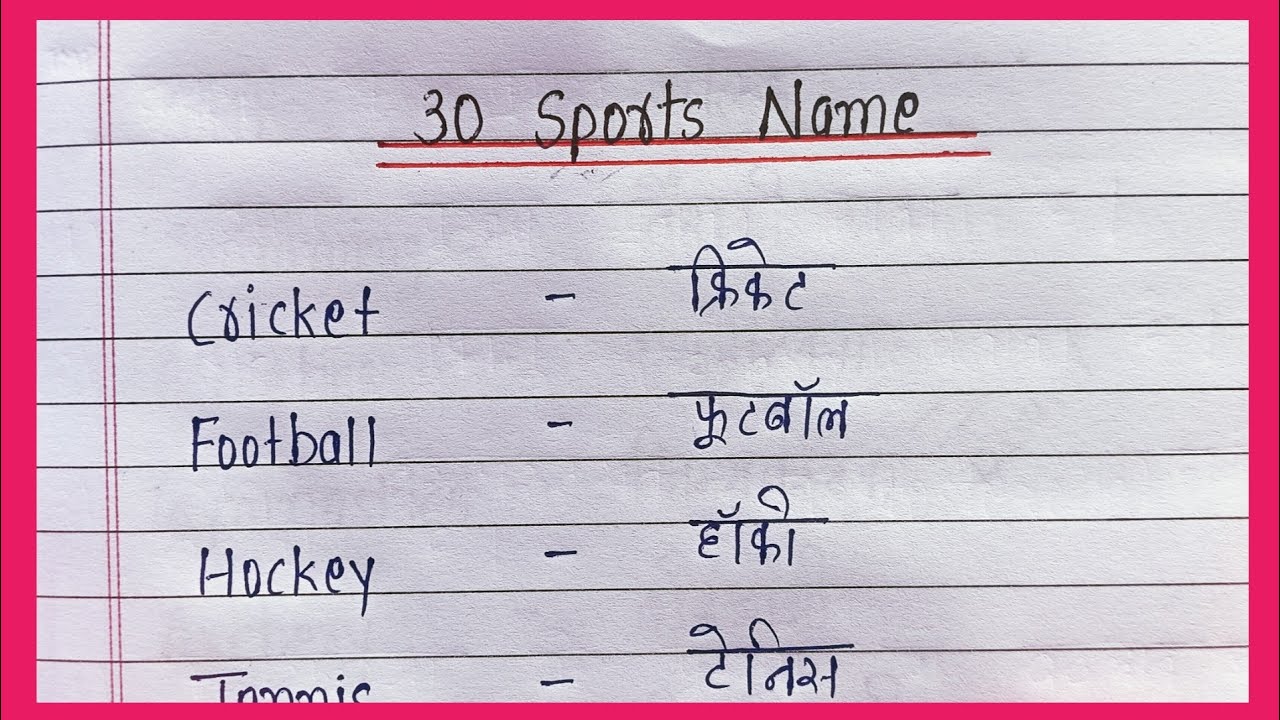 30 Sports Name
Cricket - क्रिकेट
Football - फूटबॉल
Hockey - हॉकी
Tennis - टेनिस